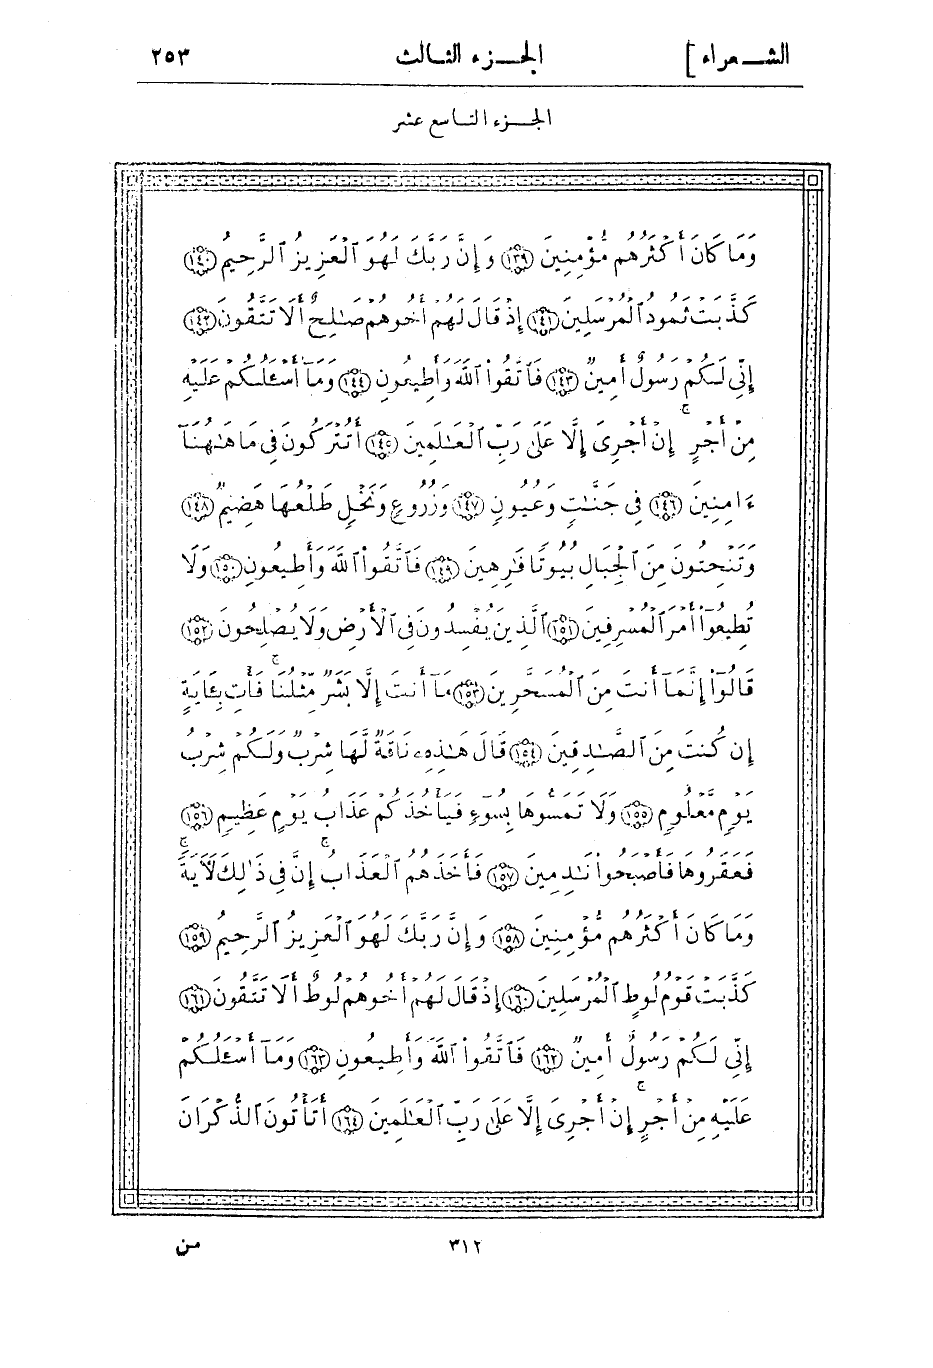 الشعراء] الجزء الثالث ٢٥٣
الجزء التاسع عشر
وَمَا كَانَ أَكْثَرُهُم مُّؤْمِنِينَ ﴿١٣٩﴾ وَإِنَّ رَبَّكَ لَهُوَ ٱلْعَزِيزُ ٱلرَّحِيمُ ﴿١٤٠﴾
كَذَّبَتْ ثَمُودُ ٱلْمُرْسَلِينَ ﴿١٤١﴾ إِذْ قَالَ لَهُمْ أَخُوهُمْ صَـٰلِحٌ أَلَا تَتَّقُونَ ﴿١٤٢﴾
إِنِّى لَكُمْ رَسُولٌ أَمِينٌ ﴿١٤٣﴾ فَٱتَّقُوا۟ ٱللَّهَ وَأَطِيعُونِ ﴿١٤٤﴾ وَمَآ أَسْـَٔلُكُمْ عَلَيْهِ
مِنْ أَجْرٍ ۖ إِنْ أَجْرِىَ إِلَّا عَلَىٰ رَبِّ ٱلْعَـٰلَمِينَ ﴿١٤٥﴾ أَتُتْرَكُونَ فِى مَا هَـٰهُنَآ
ءَامِنِينَ ﴿١٤٦﴾ فِى جَنَّـٰتٍ وَعُيُونٍ ﴿١٤٧﴾ وَزُرُوعٍ وَنَخْلٍ طَلْعُهَا هَضِيمٌ ﴿١٤٨﴾
وَتَنْحِتُونَ مِنَ ٱلْجِبَالِ بُيُوتًا فَـٰرِهِينَ ﴿١٤٩﴾ فَٱتَّقُوا۟ ٱللَّهَ وَأَطِيعُونِ ﴿١٥٠﴾ وَلَا
تُطِيعُوٓا۟ أَمْرَ ٱلْمُسْرِفِينَ ﴿١٥١﴾ ٱلَّذِينَ يُفْسِدُونَ فِى ٱلْأَرْضِ وَلَا يُصْلِحُونَ ﴿١٥٢﴾
قَالُوٓا۟ إِنَّمَآ أَنتَ مِنَ ٱلْمُسَحَّرِينَ ﴿١٥٣﴾ مَآ أَنتَ إِلَّا بَشَرٌ مِّثْلُنَا ۚ فَأْتِ بِـَٔايَةٍ
إِن كُنتَ مِنَ ٱلصَّـٰدِقِينَ ﴿١٥٤﴾ قَالَ هَـٰذِهِۦ نَاقَةٌ لَّهَا شِرْبٌ وَلَكُمْ شِرْبُ
يَوْمٍ مَّعْلُومٍ ﴿١٥٥﴾ وَلَا تَمَسُّوهَا بِسُوٓءٍ فَيَأْخُذَكُمْ عَذَابُ يَوْمٍ عَظِيمٍ ﴿١٥٦﴾
فَعَقَرُوهَا فَأَصْبَحُوا۟ نَـٰدِمِينَ ﴿١٥٧﴾ فَأَخَذَهُمُ ٱلْعَذَابُ ۚ إِنَّ فِى ذَٰلِكَ لَـَٔايَةً ۖ
وَمَا كَانَ أَكْثَرُهُم مُّؤْمِنِينَ ﴿١٥٨﴾ وَإِنَّ رَبَّكَ لَهُوَ ٱلْعَزِيزُ ٱلرَّحِيمُ ﴿١٥٩﴾
كَذَّبَتْ قَوْمُ لُوطٍ ٱلْمُرْسَلِينَ ﴿١٦٠﴾ إِذْ قَالَ لَهُمْ أَخُوهُمْ لُوطٌ أَلَا تَتَّقُونَ ﴿١٦١﴾
إِنِّى لَكُمْ رَسُولٌ أَمِينٌ ﴿١٦٢﴾ فَٱتَّقُوا۟ ٱللَّهَ وَأَطِيعُونِ ﴿١٦٣﴾ وَمَآ أَسْـَٔلُكُمْ
عَلَيْهِ مِنْ أَجْرٍ ۖ إِنْ أَجْرِىَ إِلَّا عَلَىٰ رَبِّ ٱلْعَـٰلَمِينَ ﴿١٦٤﴾ أَتَأْتُونَ ٱلذُّكْرَانَ
٣١٢ من